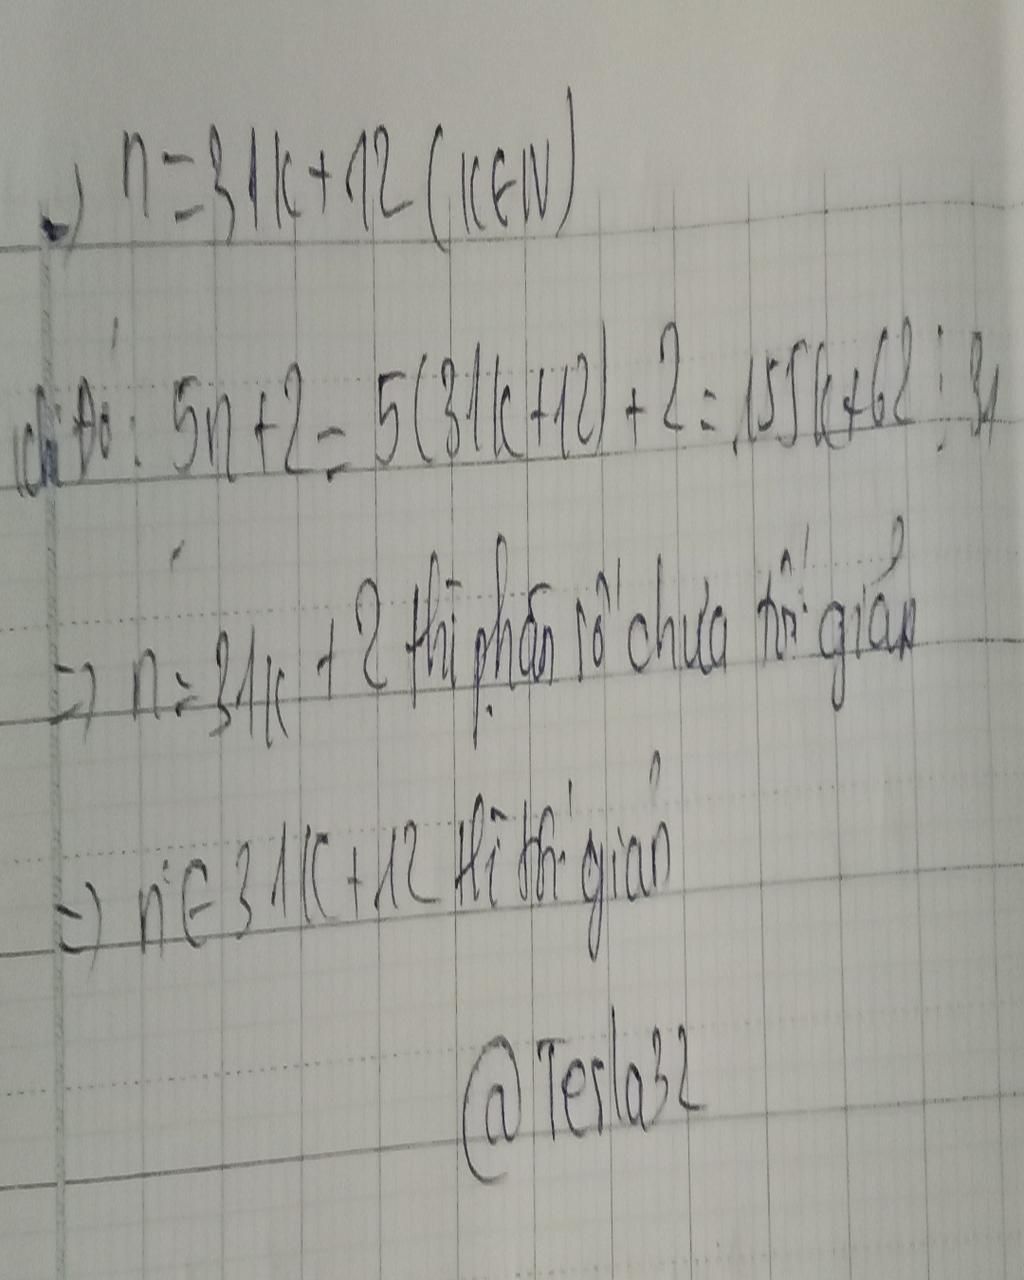 =) n = 31k + 12 (k∈N)
khi Đó: 5n + 2 = 5(31k + 12) + 2 = 155k + 62 ⋮ 31
=) n = 31k + 2 thì phân số chưa tối giản
=) n ∈ 31k + 12 thì tối giản
@Tesla32